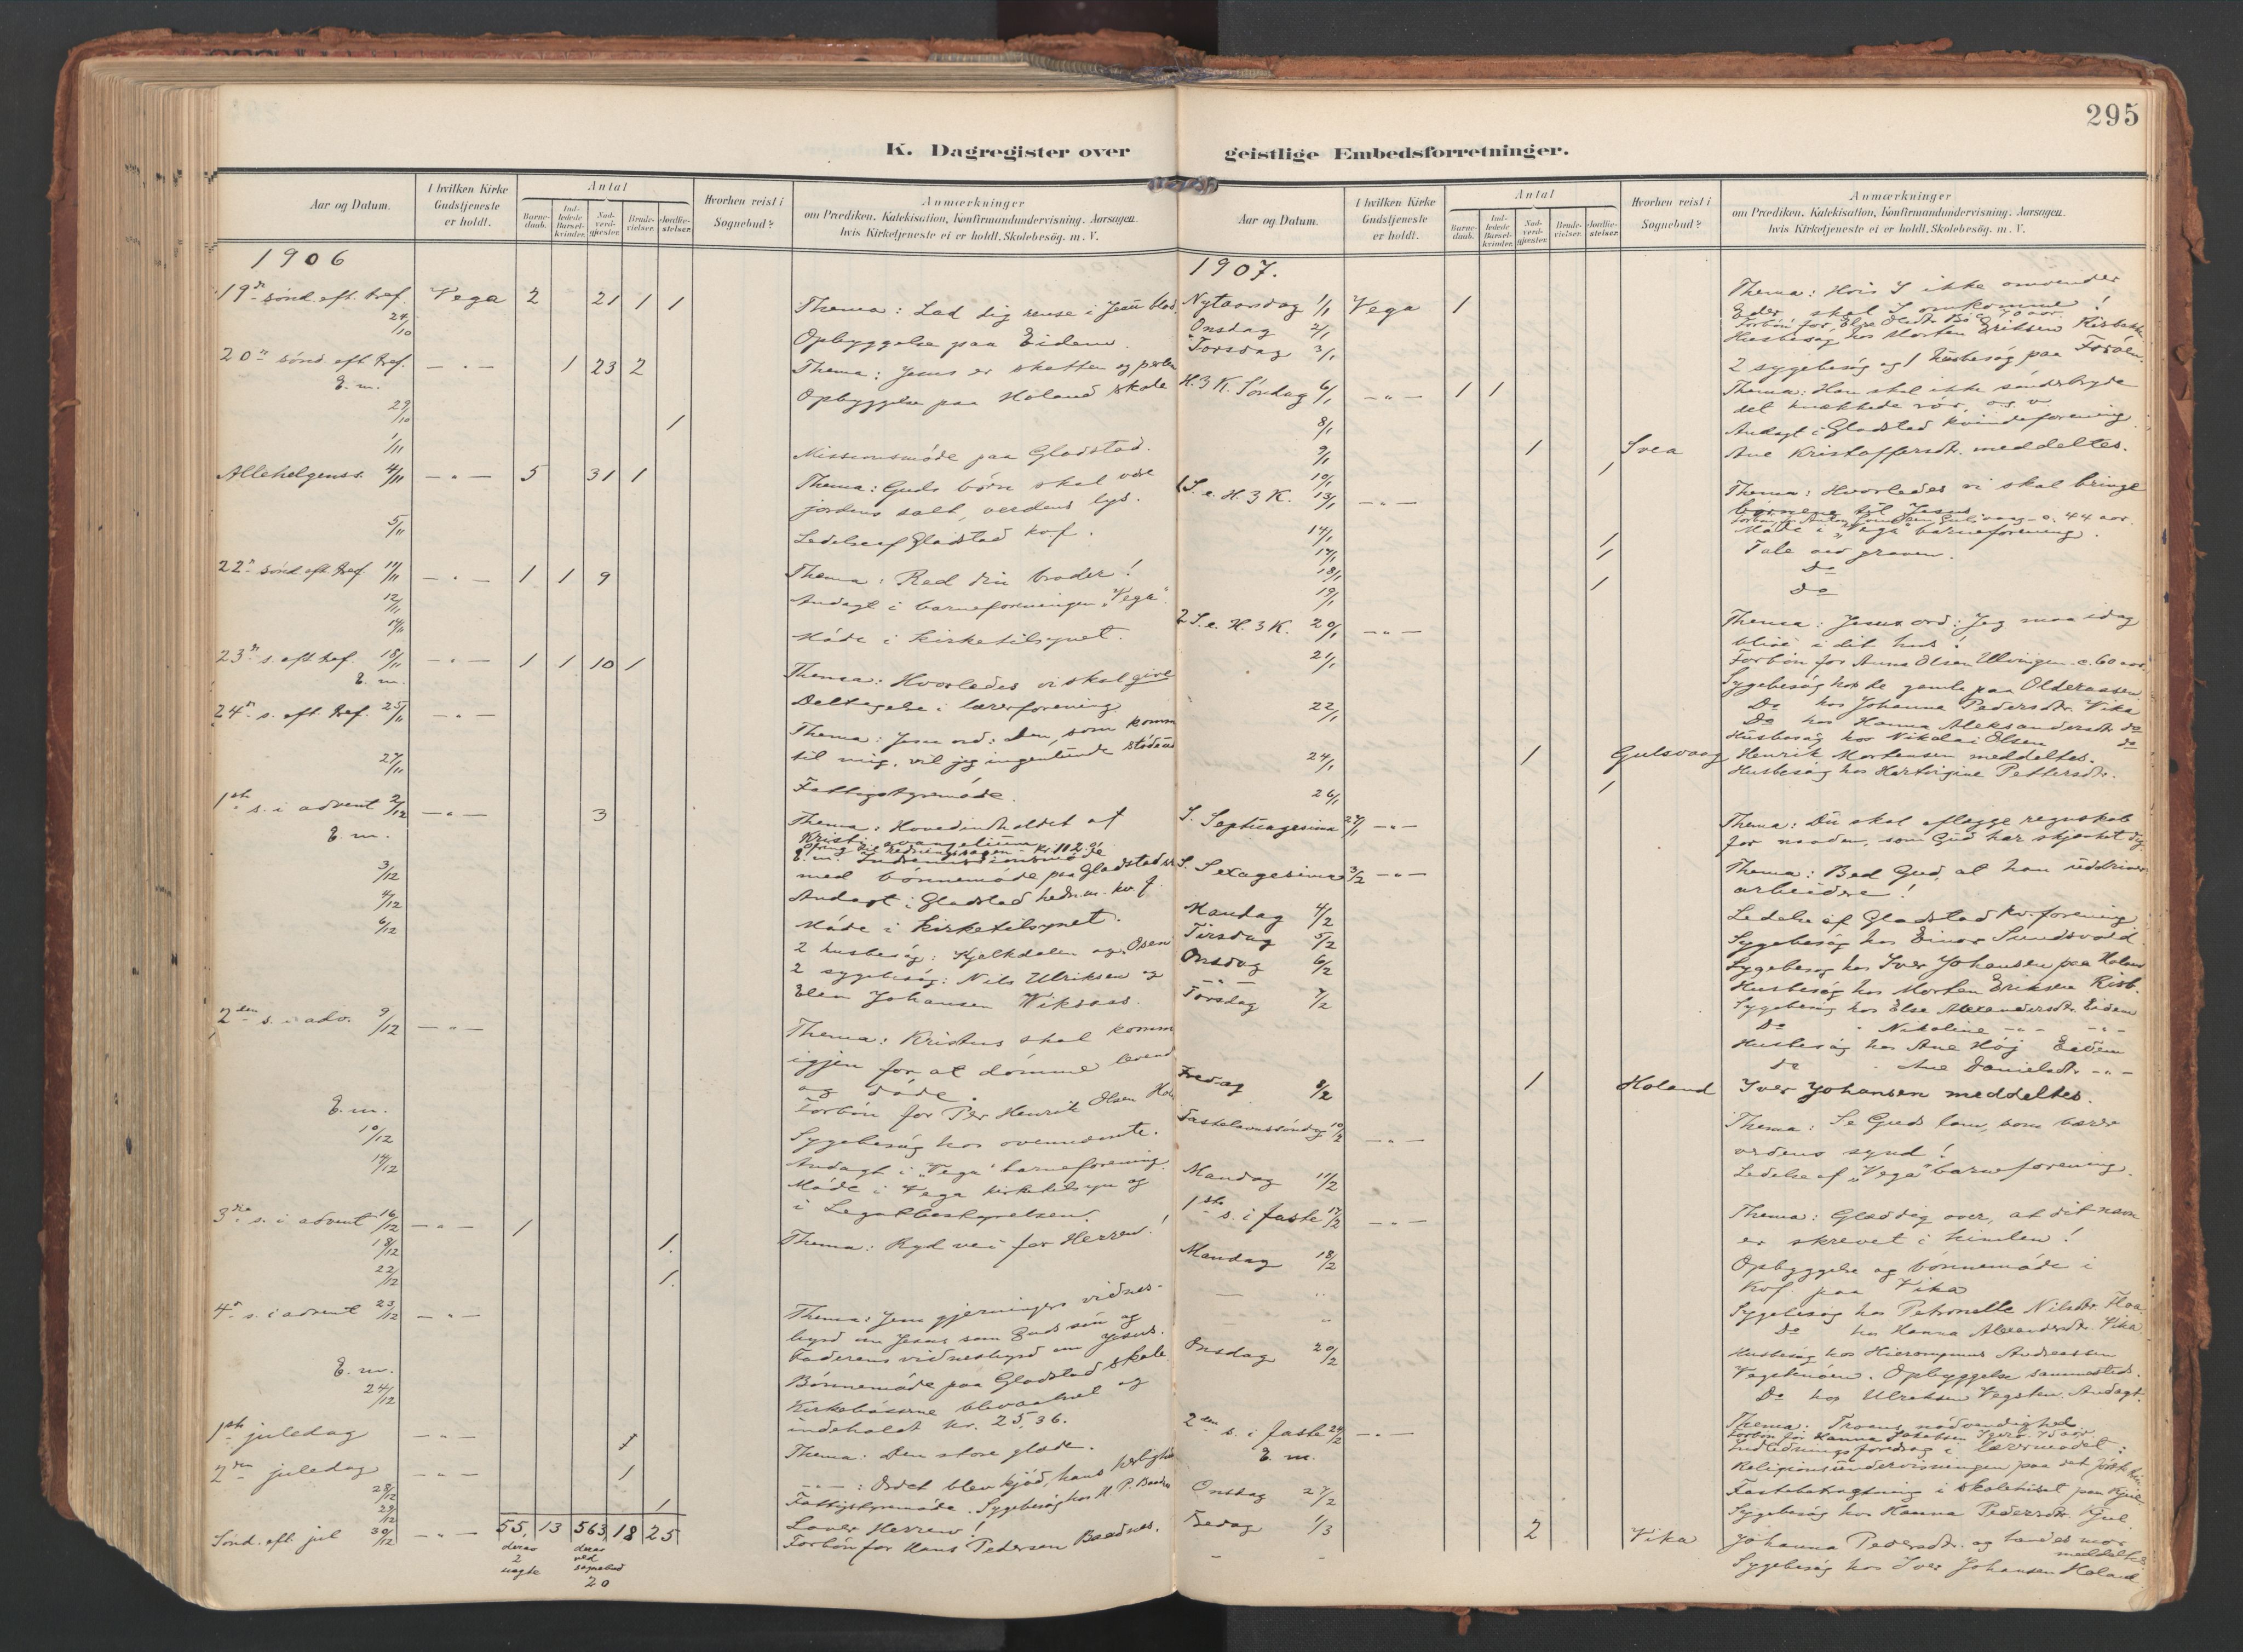 295
K. Dagregister over geistlige Embedsforretninger.
Aar og Datum. I hvilken Kirke Gudstjeneste er holdt. Antal Barnedaab. Indledede Barselkvinder. Nadverdgjæster. Brudevielser. Jordfæstelser. Hvorhen reist i Sognebud? Anmærkninger om Prædiken. Katekisation, Konfirmandundervisning. Aarsagen hvis Kirketjeneste ei er holdt. Skolebesög. m. V.
1906
19de sönd. eft. tref. Vega 2 21 1 1 Thema: Lad dig rense i Jesu blod.
24/10 Opbyggelse paa Eidem.
20de sönd. eft. tref. — " — 1 23 2 Thema: Jesus er skatten og perlen
E. m. Opbyggelse paa Holand skole
29/10 1
1/11 Missionsmöde paa Gladstad.
Allehelgenss. 4/11 — " — 5 31 1 Thema: Guds börn skal være
jordens salt, verdens lys.
5/11 Ledelse af Gladstad kvf.
22de sönd. eft. tref. 11/11 — " — 1 1 9 Thema: Red din broder!
12/11 Andagt i barneforeningen "Vega".
14/11 Möde i kirketilsynet.
23de s. eft. tref. 18/11 — " — 1 1 10 1 Thema: Hvorledes vi skal give
E. m. Deltagelse i lærerforening
24de s. eft. tref. 25/11 — " — Thema: Jesu ord: Den, som komm
til mig, vil jeg ingenlunde stöde ud
27/11 Fattigstyremöde.
1ste s. i advent 2/12 — " — 3 Thema: Hovedindholdet af
Kristi evangelium
E. m. Indremissionsmöde
med bönnemöde paa Gladstad
3/12 Andagt i Gladstad hedn. m. kv. f.
4/12 Möde i kirketilsynet.
6/12 2 husbesög: Kjelkdalen og Osen
2 sygebesög: Nils Ulriksen og
Elen Johansen Viksaas.
2den s. i adv. 9/12 — " — Thema: Kristus skal komm
igjen for at dömme levend
og döde.
Forbön for Per Henrik Olsen Hol
E. m. Sygebesög hos ovennævnte.
10/12 Andagt i "Vega" barneforening.
14/12 Möde i Vega kirketilsyn og
i Legatbestyrelsen.
3die s. i advent 16/12 — " — 1 Thema: Ryd vei for Herren!
18/12 1.
22/12 1.
4de s. i advent 23/12 — " — Thema: Jesu gjerningers vidnes-
byrd om Jesus som Guds sön og
Faderens vidnesbyrd om Jesus.
E. m. Bönnemöde paa Gladstad skole.
24/12 Kirkebössene blev aabnet og
indeholdt kr. 25,36.
1ste juledag — " — 1 Thema: Den store glæde.
2den juledag — " — 1 — " — : Ordet blev kjöd, hans herlighed
28/12 Fattigstyremöde. Sygebesög hos H. P. Baadnes
29/12 1
Sönd. eft. jul 30/12 — " — 55, 13 563 18 25 Lover Herren!
Forbön for Hans Pedersen Baadnes.
deraf 2 uægte
deraf ved sognebud 20
Aar og Datum. I hvilken Kirke Gudstjeneste er holdt. Antal Barnedaab. Indledede Barselkvinder. Nadverdgjæster. Brudevielser. Jordfæstelser. Hvorhen reist i Sognebud? Anmærkninger om Prædiken. Katekisation, Konfirmandundervisning. Aarsagen hvis Kirketjeneste ei er holdt. Skolebesög. m. V.
1907.
Nytaarsdag 1/1 Vega 1 Thema: Hvis I ikke omvender
Eder, skal I omkomme!
Onsdag 2/1 Husbesög hos Morten Eriksen
Torsdag 3/1 2 sygebesög og 1 husbesög paa
H. 3 K. Söndag 6/1 — " — 1 1 Thema: Han skal ikke sönderbryde
det knækkede rör, o. s. v.
8/1 Andagt i Gladstad kvindeforening.
9/1 1 Svea Ane Kristoffersdtr. meddeltes.
10/1 1
1 S. e. H. 3 K. 13/1 — " — Thema: Hvorledes vi skal bringe
börnene til Jesus
14/1 Möde i "Vega" barneforening.
17/1 1 Tale ved graven.
18/1 1 do
19/1 1 do
2 S. e. H. 3 K. 20/1 — " — Thema: Jesus ord: Jeg maa idag
blive i dit hus!
Forbön for Anna Olsen Ulvingen c. 60 aar.
21/1 Sygebesög hos de gamle paa Olderaasen
Do hos Johanna Pedersdtr. Vika
22/1 Do hos Hanna Aleksandersdtr. do
Husbesög hos Nikolai Olsen do
24/1 1 Gulsvaag Henrik Mortensen meddeltes.
Husbesög hos Hartvigine Pettersdtr.
26/1 1
S. Septuagesima 27/1 — " — Thema: Du skal aflægge regnskab
for naaden, som Gud har skjænket dig
S. Sexagesima 3/2 — " — Thema: Bed Gud, at han uddriver
arbeidere!
Mandag 4/2 Ledelse af Gladstad kv. forening
Tirsdag 5/2 Sygebesög hos Einar Sundsvold
Onsdag 6/2 Sygebesög hos Iver Johansen paa Holand
— " — Husbesög hos Morten Eriksen Risb.
Torsdag 7/2 Sygebesög hos Else Alexandersdtr. Eidem
Do " Nikoline — " — — " —
Husbesög hos Ane Höj Eidem
do " Ane Danielsdtr. — " —
Fredag 8/2 1 Holand Iver Johansen meddeltes.
Fastelavnssöndag 10/2 — " — Thema: Se Guds lam, som bærer
verdens synd!
Mandag 11/2 Ledelse af "Vega" barneforening.
1ste s. i faste 17/2 — " — Thema: Glæd dig over, at dit navn
er skrevet i himlen!
Mandag 18/2 Opbyggelse og bönnemöde i
Kvf. paa Vika
— " Sygebesög hos Petronelle Nilsdtr.
" Do hos Hanna Alexandersdtr. Vika
Onsdag 20/2 Husbesög hos Hieronymus Andreassen
Vegstenöen. Opbyggelse sammesteds.
Do hos Ulriksen Vegsten. Andagt.
2den s. i faste 24/2 — " — Thema: Troens nödvendighed.
Forbön for Hanna Jakobsen
E. m. Indledningsforedrag i lærermödet:
Religionsundervisningen paa det
Onsdag 27/2 Fastebetragtning i skolehuset paa Kjul
Sygebesög hos Hanna Pedersdtr. Kjul.
Fredag 1/3 2 Vika Johanna Pedersdtr. og hendes mor
meddeltes
— " Sygebesög hos Iver Johansen Holand